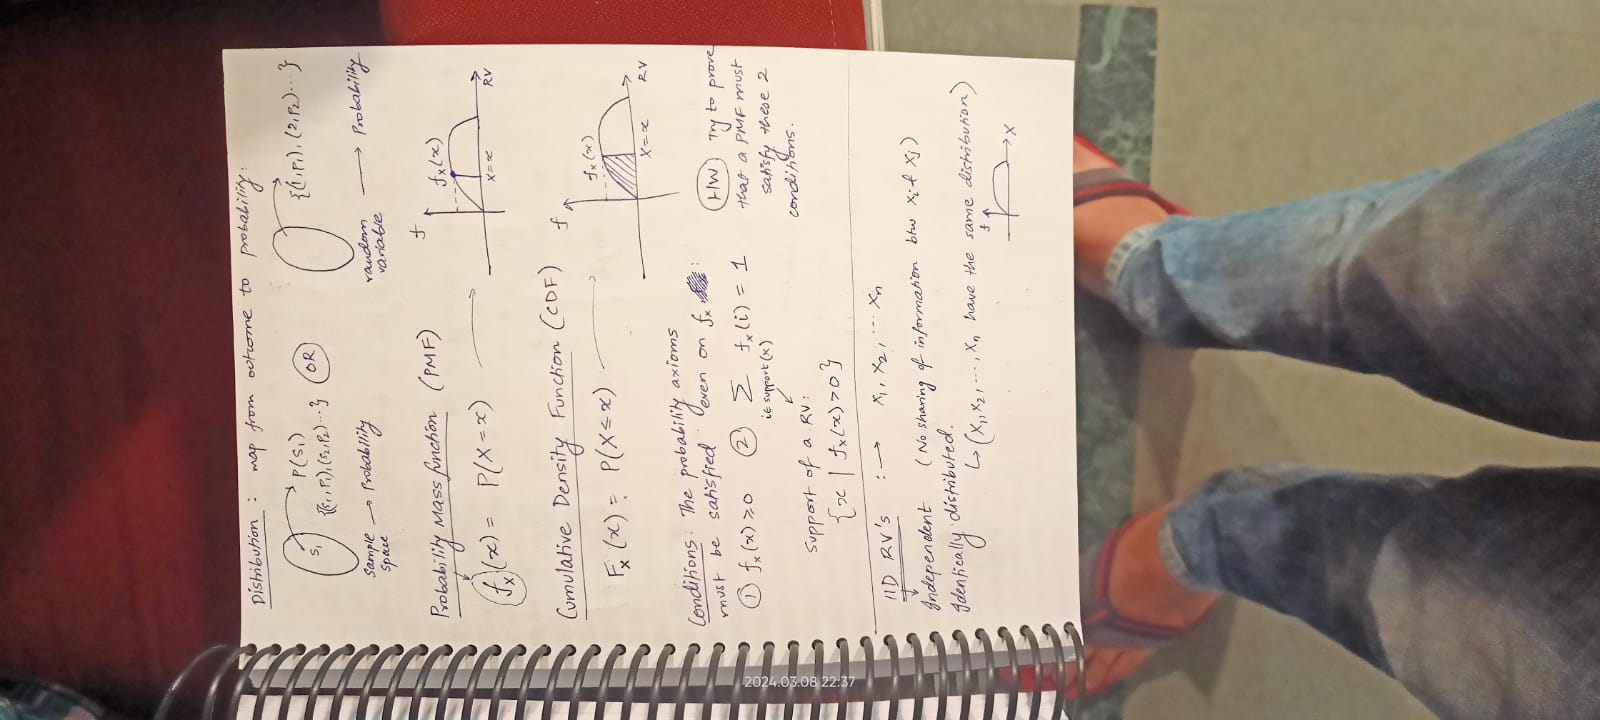 Distribution : map from outcome to probability.
S₁ P(S₁)
{(S₁, P₁), (S₂, P₂) ... } OR {(1, P₁), (2, P₂) ... }
Sample space → Probability
random variable → Probability
Probability Mass function (PMF)
fₓ(x) = P(X = x)
f
fₓ(x)
X = x RV
Cumulative Density Function (CDF)
Fₓ(x) = P(X ≤ x)
f
fₓ(x)
X = x RV
Conditions : The probability axioms
must be satisfied even on fₓ :
① fₓ(x) ≥ 0 ② Σ fₓ(i) = 1
i ∈ support(x)
Support of a RV :
{ x | fₓ(x) > 0 }
H/W Try to prove
that a PMF must
satisfy these 2
conditions.
IID RV's : → X₁, X₂, ... Xₙ
Independent (No sharing of information btw Xᵢ & Xⱼ)
Identically distributed.
↳ (X₁, X₂, ..., Xₙ have the same distribution)
f
X
2024.03.08 22:37